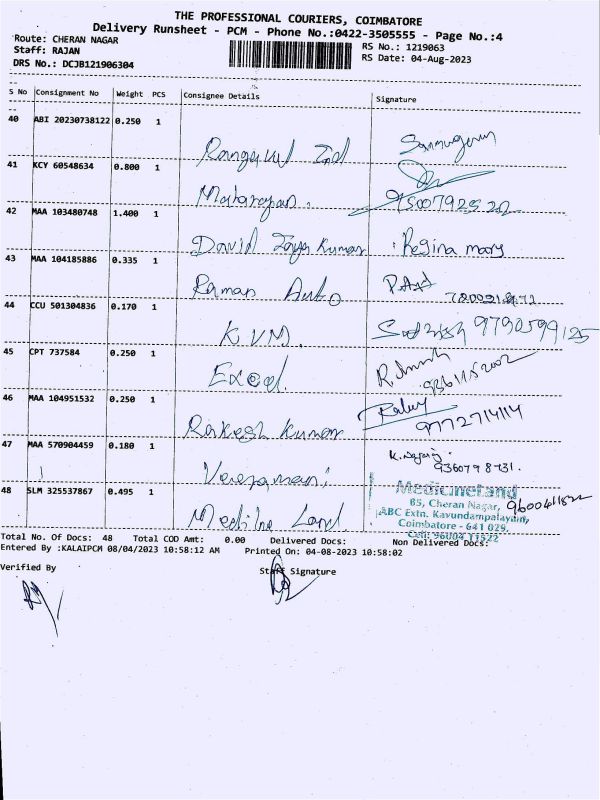 THE PROFESSIONAL COURIERS, COIMBATORE
Delivery Runsheet - PCM - Phone No.:0422-3505555 - Page No.:4
Route: CHERAN NAGAR
RS No.: 1219063
Staff: RAJAN
RS Date: 04-Aug-2023
DRS No.: DCJB121906304
S No Consignment No Weight PCS Consignee Details Signature
40 ABI 20230738122 0.250 1
41 KCY 60548634 0.800 1
95007925 22
42 MAA 103480748 1.400 1
David Jaya Kumar Regina mary
43 MAA 104185886 0.335 1
Raman Auto
44 CCU 501304836 0.170 1
K V M. 9790599125
45 CPT 737584 0.250 1
Excel. 9361152002
46 MAA 104951532 0.250 1
Rakesh Kumar 9772714114
47 MAA 570904459 0.180 1
Veeramani
48 SLM 325537867 0.495 1
Medicine Land
MedicineLand
85, Cheran Nagar,
ABC Extn. Kavundampalayam,
Coimbatore - 641 029.
Cell: 96004 11522
Total No. Of Docs: 48 Total COD Amt: 0.00 Delivered Docs: Non Delivered Docs:
Entered By :KALAIPCM 08/04/2023 10:58:12 AM Printed On: 04-08-2023 10:58:02
Verified By
Staff Signature